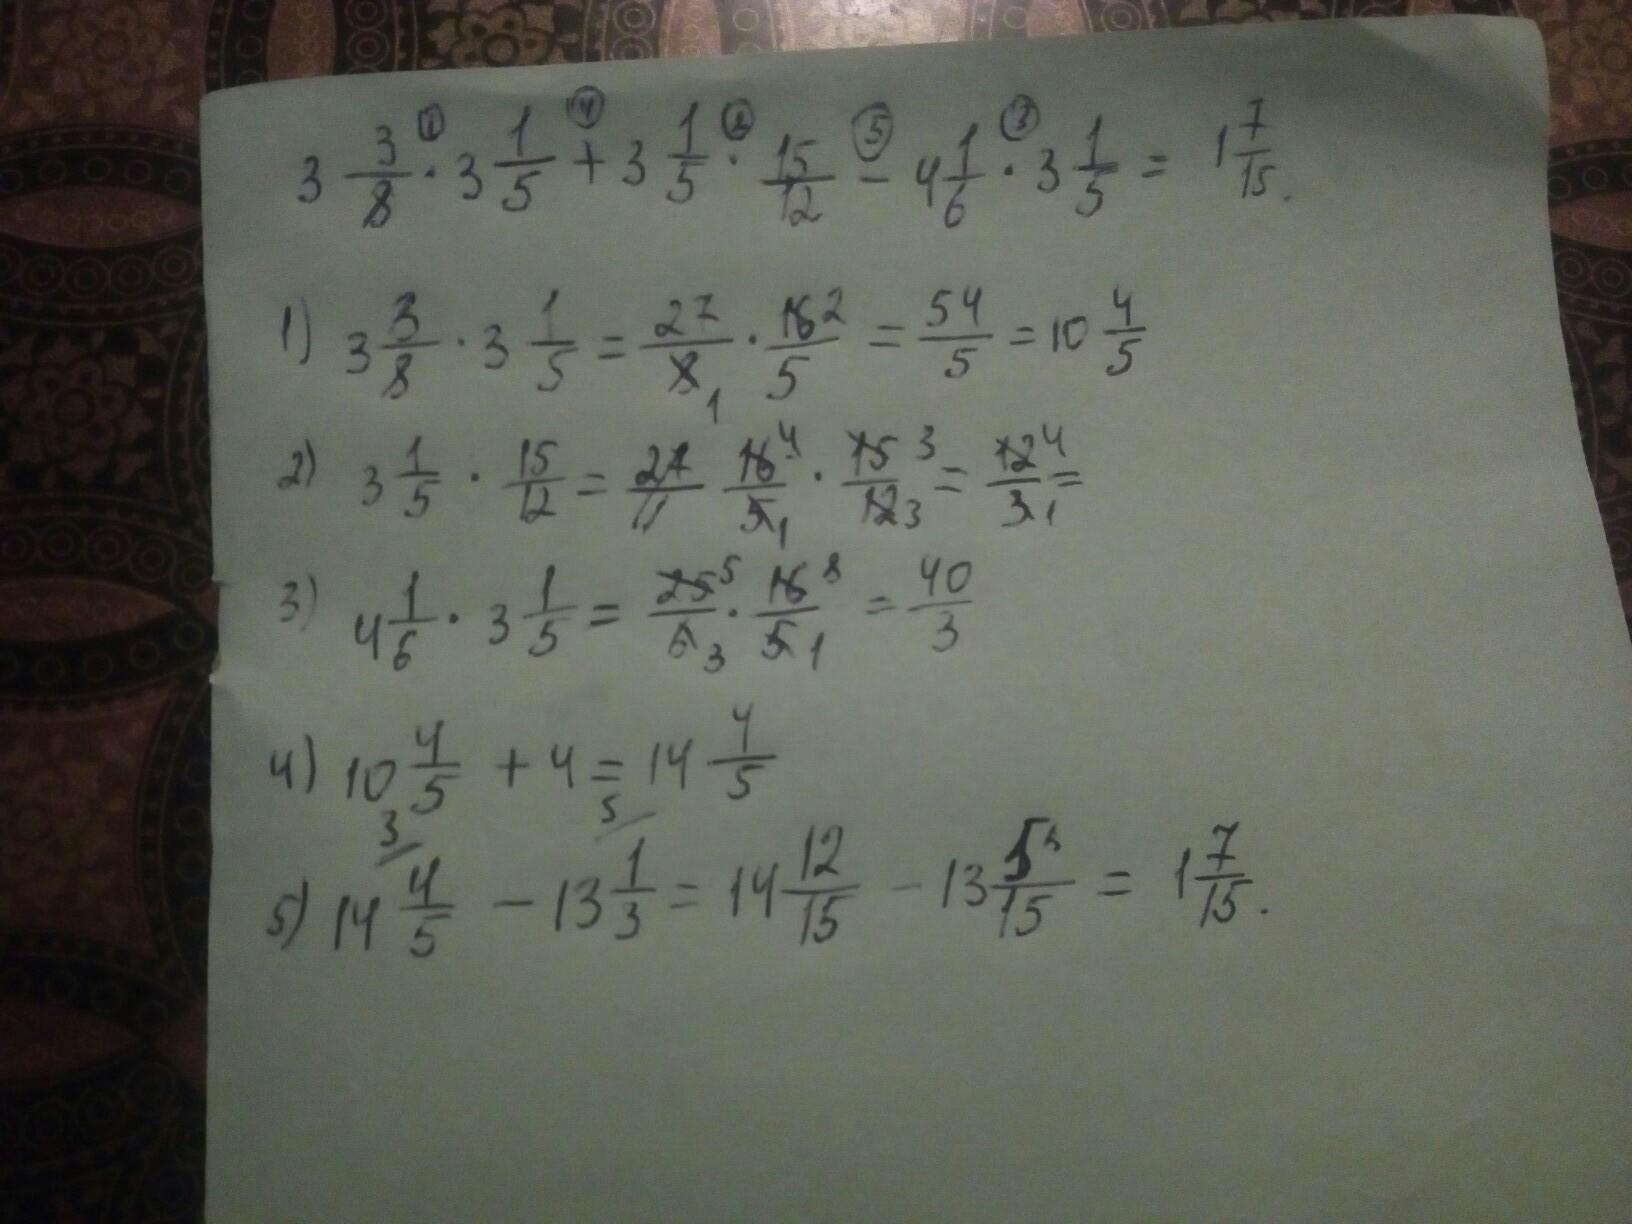 3 3/8 · 3 1/5 + 3 1/5 · 15/12 − 4 1/6 · 3 1/5 = 1 7/15.
1) 3 3/8 · 3 1/5 = 27/8 · 16/5 = 54/5 = 10 4/5
2) 3 1/5 · 15/12 = 16/5 · 15/12 = 12/3 =
3) 4 1/6 · 3 1/5 = 25/6 · 16/5 = 40/3
4) 10 4/5 + 4 = 14 4/5
5) 14 4/5 − 13 1/3 = 14 12/15 − 13 5/15 = 1 7/15.